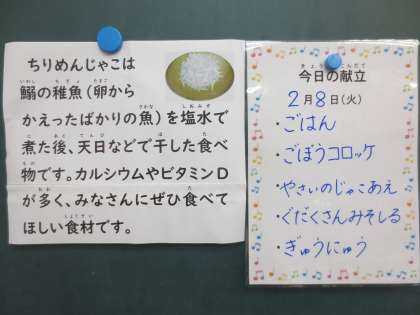 ちりめんじゃこは
鰯の稚魚(卵から
かえったばかりの魚)を塩水で
煮た後、天日などで干した食べ
物です。カルシウムやビタミンD
が多く、みなさんにぜひ食べて
ほしい食材です。
今日の献立
2月8日(火)
・ごはん
・ごぼうコロッケ
・やさいのじゃこあえ
・ぐだくさんみそしる
・ぎゅうにゅう